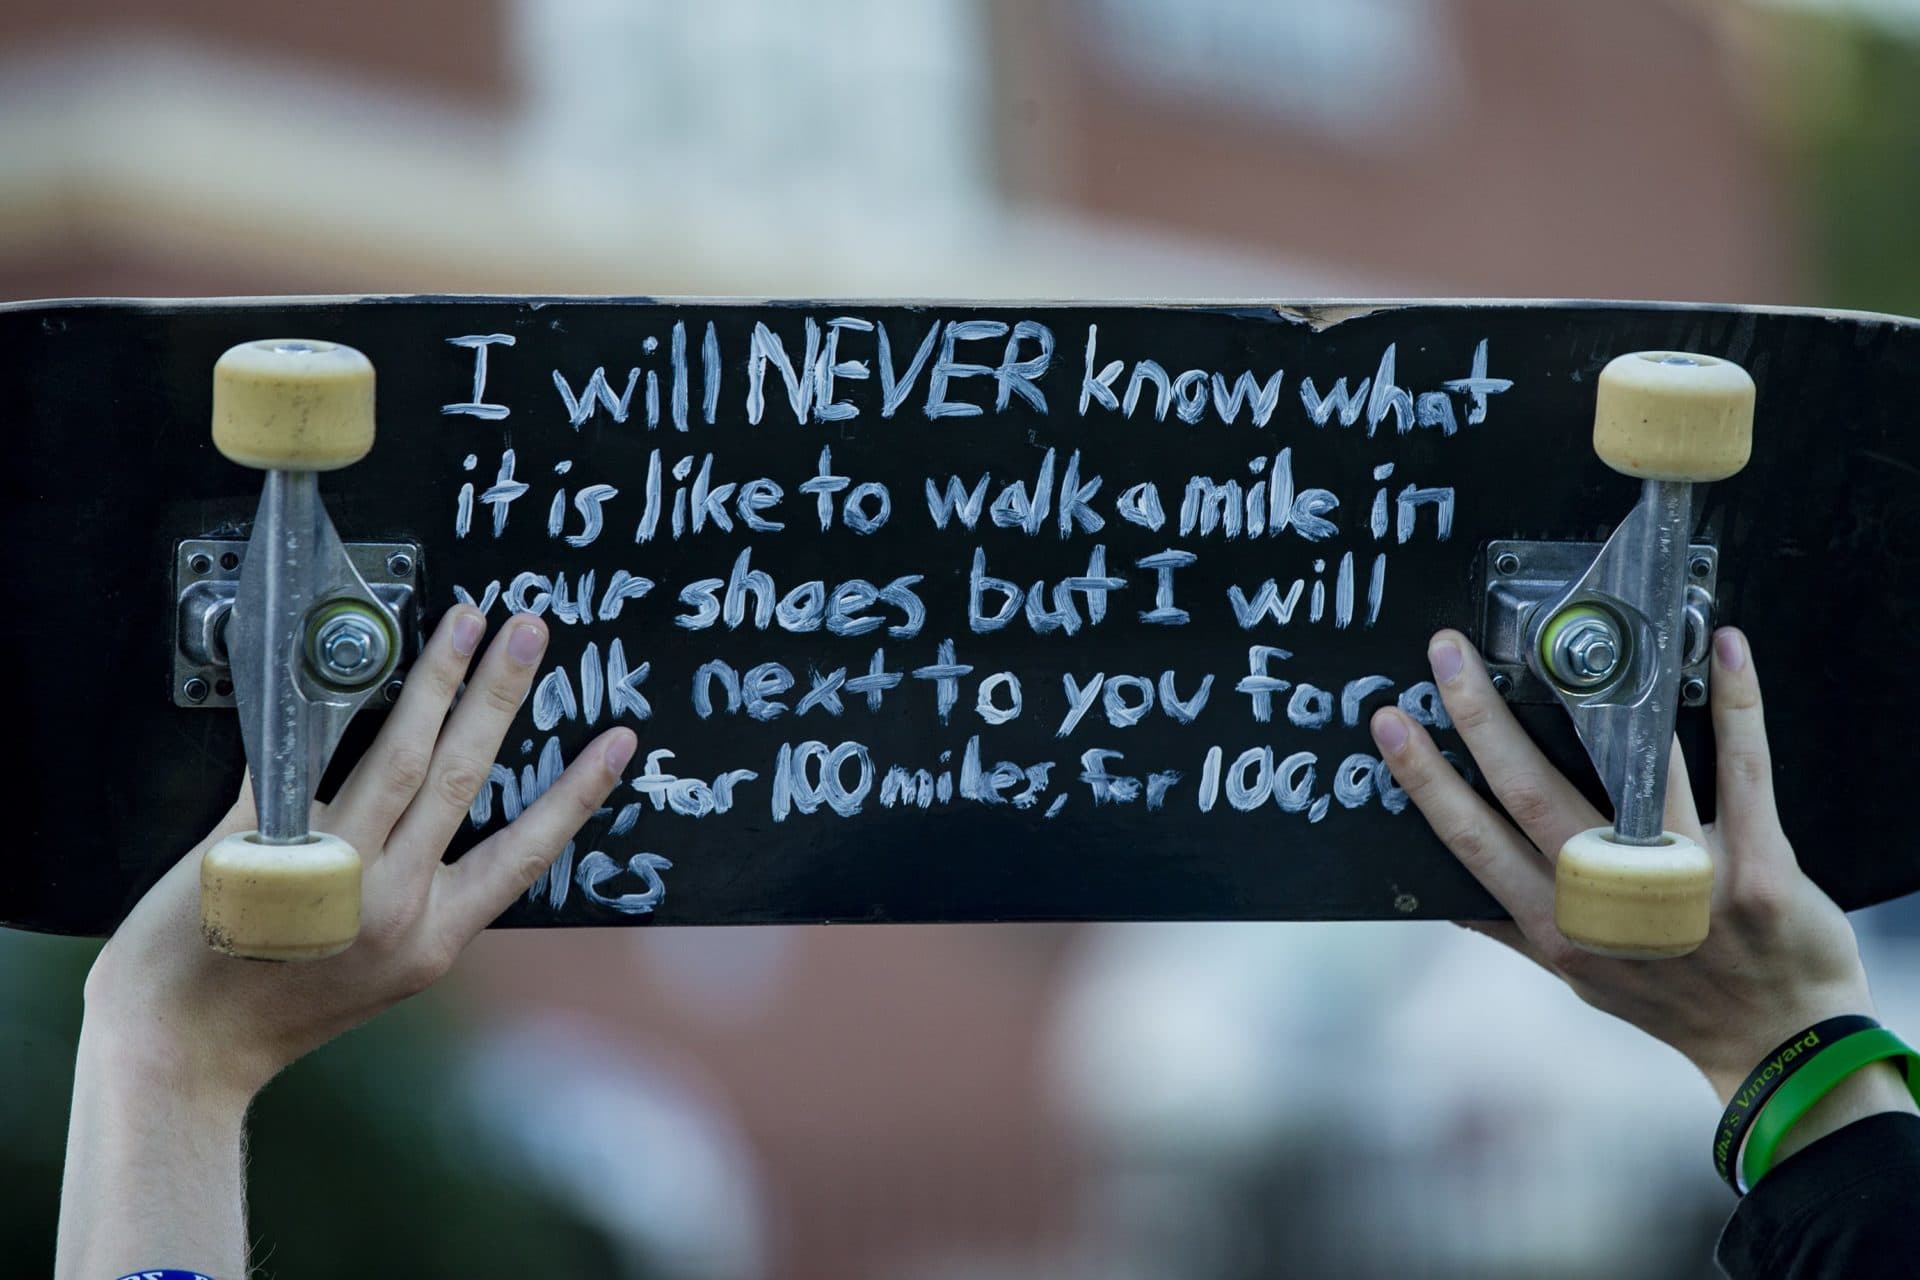 I will NEVER know what
it is like to walk a mile in
your shoes but I will
walk next to you for a
mile, for 100 miles, for 100,000
miles
Martha's Vineyard